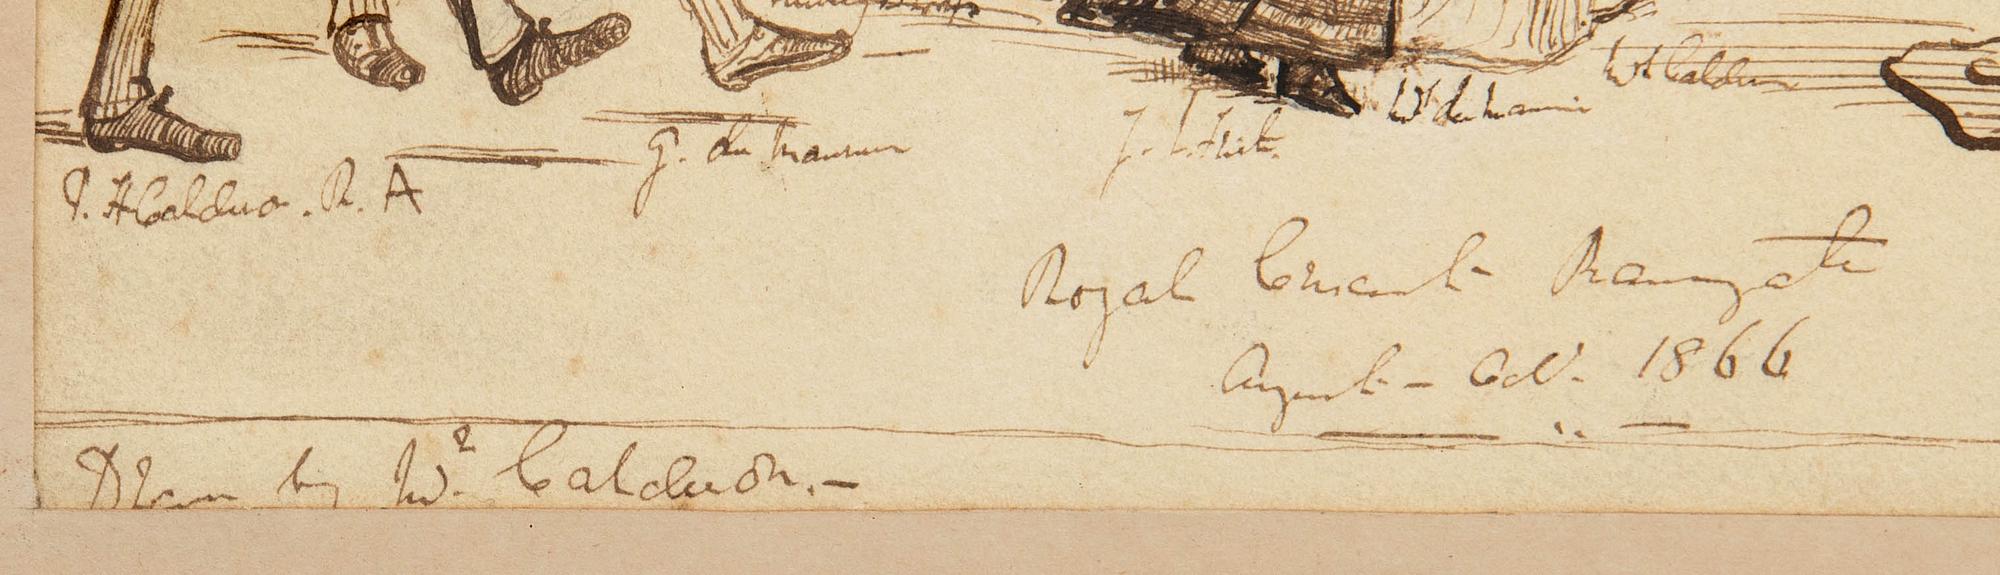 P. H Calderon. R. A
G. du Maurier
Mrs du Maurier
Mrs Calderon
Royal Crescent Ramsgate
August – Oct. 1866
Drawn by Mr. Calderon.–